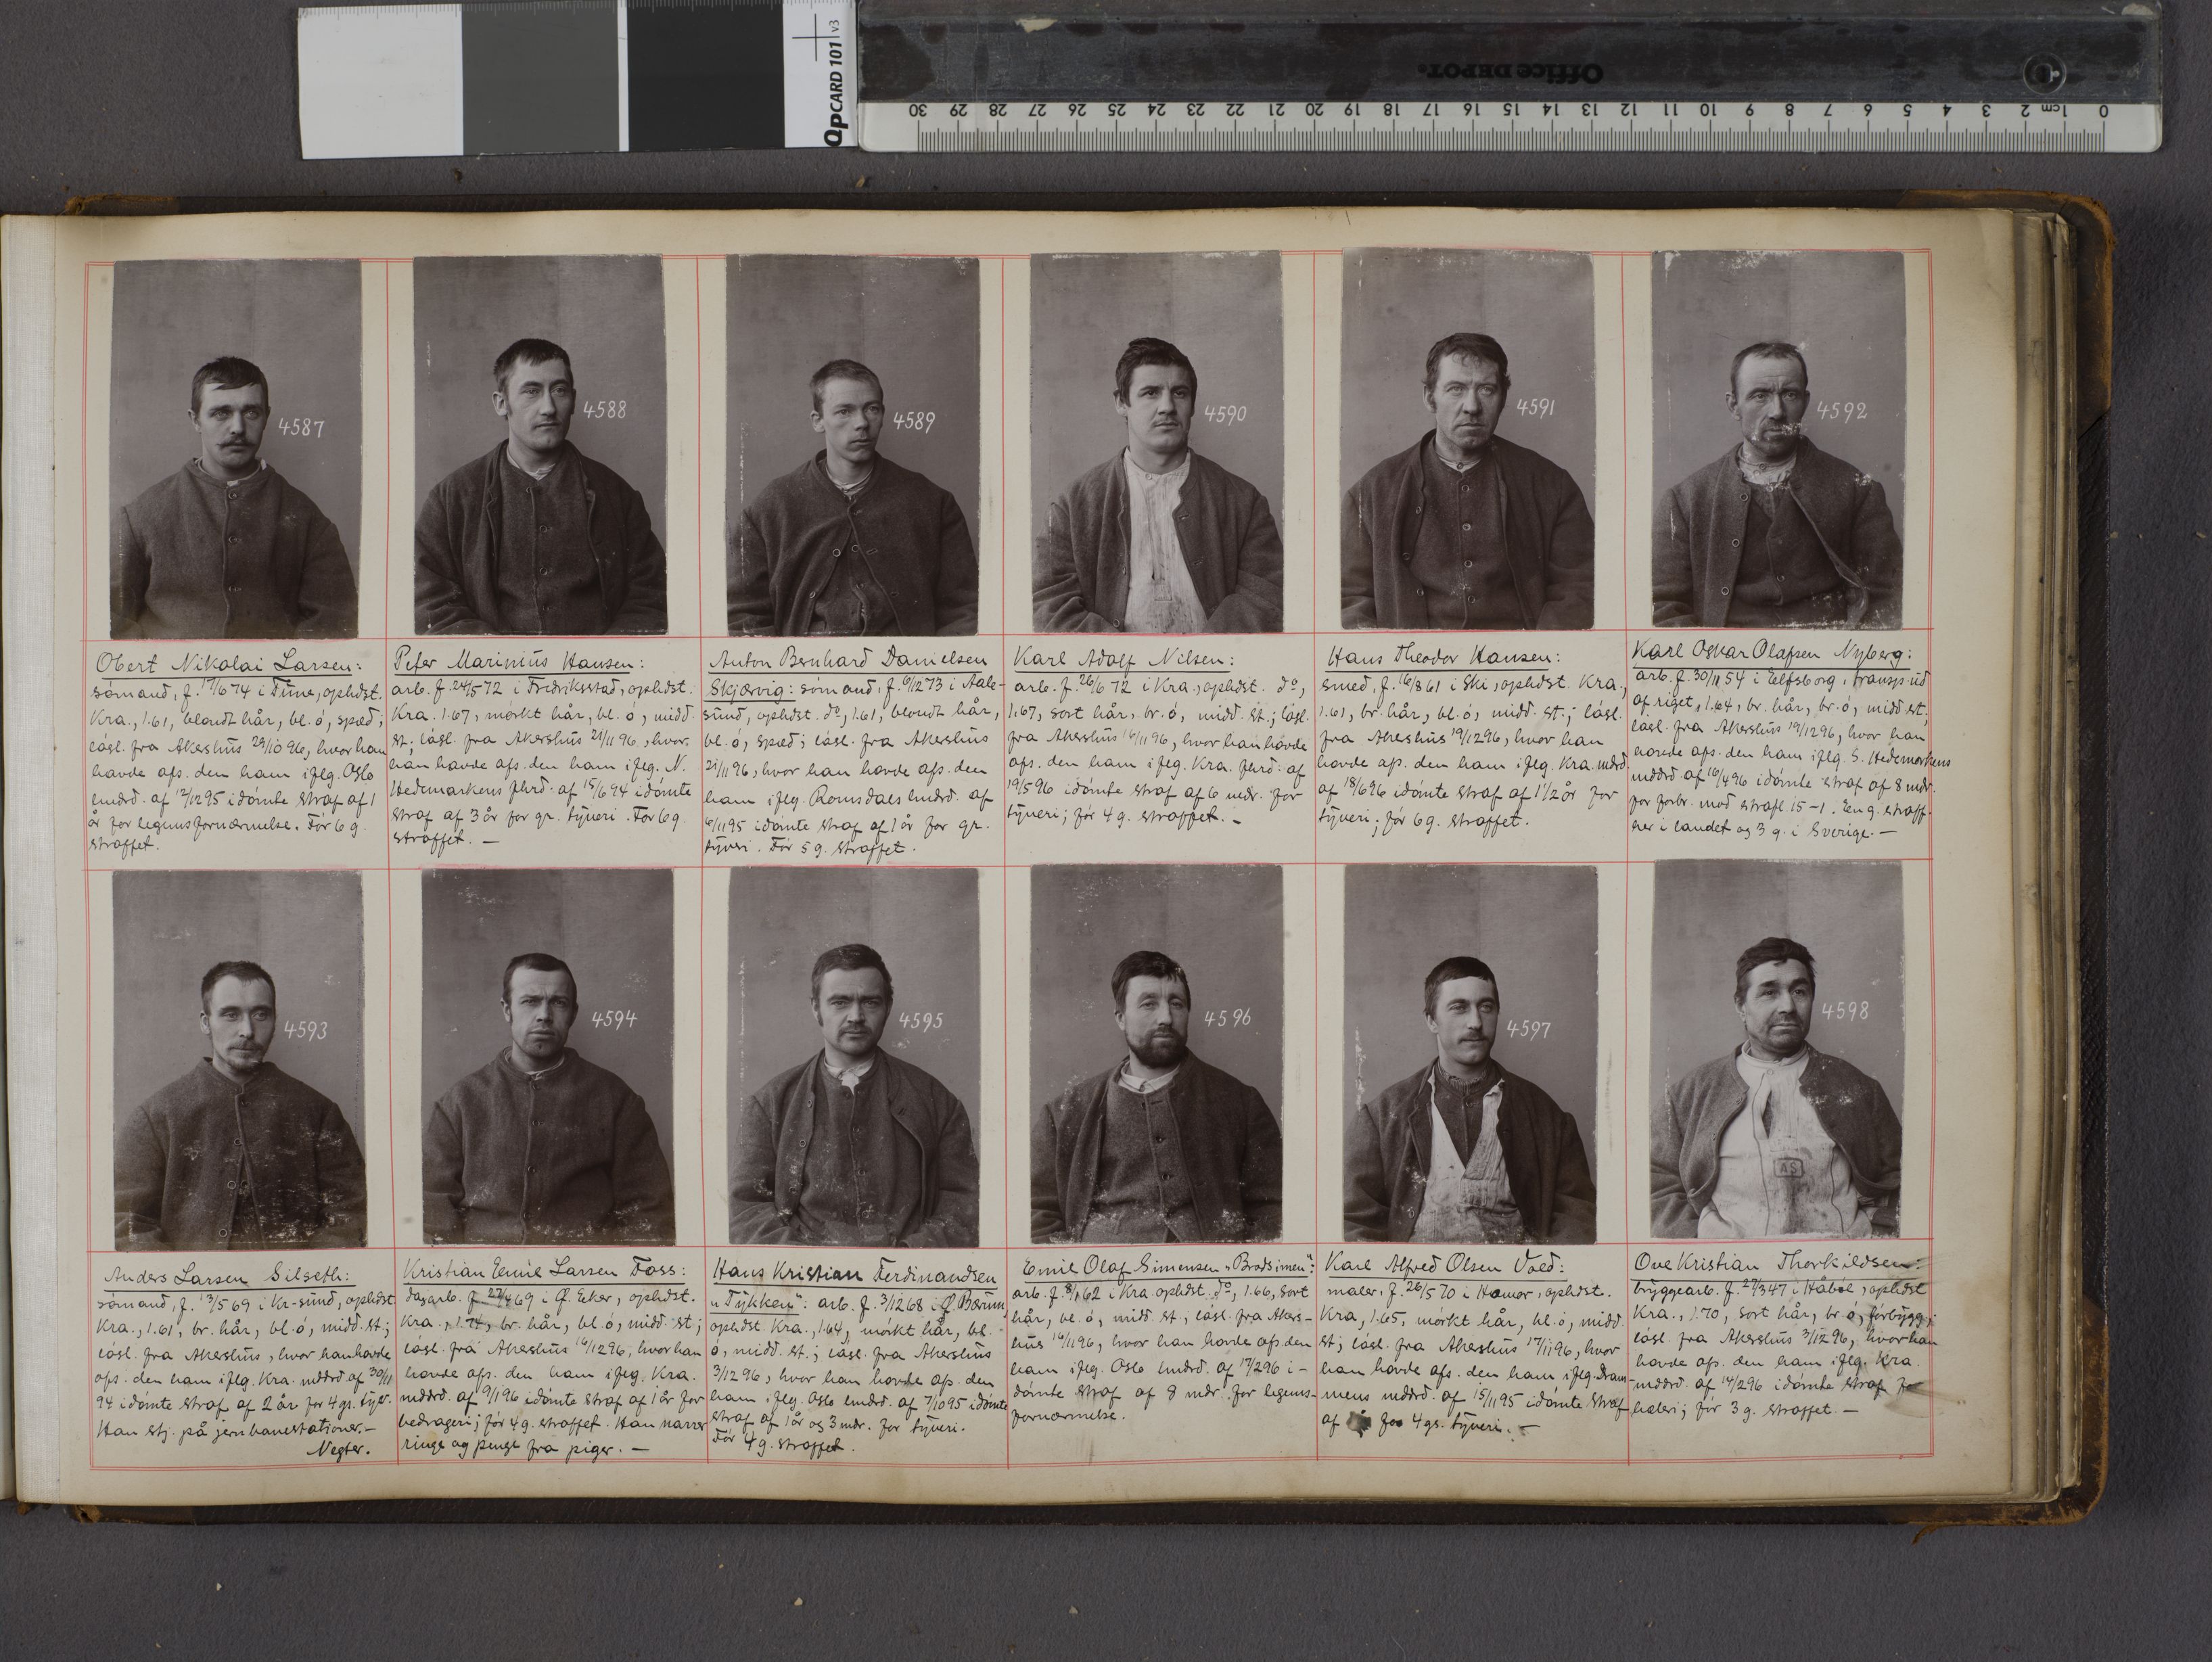 QpCARD 101 v3
Office DEPOT
30 29 28 27 26 25 24 23 22 21 20 19 18 17 16 15 14 13 12 11 10 9 8 7 6 5 4 3 2 1 cm 0
4587
4588
4589
4590
4591
4592
Obert Nikolai Larsen:
sömand, f. 17/6 74 i Tune, ophdst.
Kra., 1.61, blondt hår, bl. ö, spæd,
lösl. fra Akershus 29/10 96, hvor han
havde afs. den ham iflg. Oslo
lmdrd. af 12/12 95 idömte straf af 1
år for legemsfornærmelse. Før 6 g.
straffet.
Peter Marinius Hansen:
arb. f. 24/5 72 i Fredriksstad, ophdst.
Kra. 1.67, mörkt hår, bl. ö, midd.
st; lösl. fra Akershus 21/11 96, hvor
han havde afs. den ham iflg. N.
Hedemarkens fhrd. af 15/6 94 idömte
straf af 3 år for gr. tyveri. Før 6 g.
straffet. —
Anton Bernhard Danielsen
Skjærvig: sömand, f. 6/12 73 i Aale-
sund, ophdst. do, 1.61, blondt hår,
bl. ö, spæd; lösl. fra Akershus
21/11 96, hvor han havde afs. den
ham iflg. Romsdals lmdrd. af
6/11 95 idömte straf af 1 år for gr.
tyveri. Før 5 g. straffet.
Karl Adolf Nilsen:
arb. f. 26/6 72 i Kra., ophdst. do,
1.67, sort hår, br. ö, midd. st.; lösl.
fra Akershus 16/11 96, hvor han havde
afs. den ham iflg. Kra. fhrd. af
19/5 96 idömte straf af 6 mdr. for
tyveri; før 4 g. straffet. —
Hans Theodor Hansen:
smed, f. 16/8 61 i Ski, ophdst. Kra.,
1.61, br. hår, bl. ö, midd. st.; lösl.
fra Akershus 19/12 96, hvor han
havde afs. den ham iflg. Kra. mdrd.
af 18/6 96 idömte straf af 1 1/2 år for
tyveri; før 6 g. straffet.
Karl Oskar Olafsen Nyberg:
arb. f. 30/11 54 i Elfsborg, transp. ud
af riget, 1.64, br. hår, br. ö, midd st,
lösl. fra Akershus 19/12 96, hvor han
havde afs. den ham iflg. S. Hedemarkens
mddrd. af 16/4 96 idömte straf af 8 mdr.
for forbr. mod strafl. 15-1. En g. straff.
her i landet og 3 g. i Sverige. —
4593
4594
4595
4596
4597
4598
AS
Anders Larsen Silseth:
sömand, f. 13/5 69 i Kr-sund, ophdst.
Kra., 1.61, br. hår, bl. ö, midd. st;
lösl. fra Akershus, hvor han havde
afs. den ham iflg. Kra. mddrd. af 30/11
94 idömte straf af 2 år for 4 gr. tyv.
Han stj. på jernbanestationer. —
Negter.
Kristian Emil Larsen Foss:
dagarb. f. 27/4 69 i Ø. Eker, ophdst.
Kra., 1.74, br. hår, bl. ö, midd. st;
lösl. fra Akershus 16/12 96, hvor han
havde afs. den ham iflg. Kra.
mddrd. af 9/1 96 idömte straf af 1 år for
bedrageri; før 4 g. straffet. Han narrer
ringe og penge fra piger. —
Hans Kristian Ferdinandsen
"Tykken": arb. f. 3/12 68 i Ø. Bærum,
ophdst. Kra., 1.64, mörkt hår, bl.
ö, midd. st.; lösl. fra Akershus
3/12 96, hvor han havde afs. den
ham iflg. Oslo lmdrd. af 7/10 95 idömte
straf af 1 år og 3 mdr. for tyveri.
Før 4 g. straffet.
Emil Olaf Simensen "Brodsimen":
arb. f. 8/1 62 i Kra. ophdst. do, 1.66, sort
hår, bl. ö, midd. st.; lösl. fra Akers-
hus 16/11 96, hvor han havde afs. den
ham iflg. Oslo lmdrd. af 17/2 96 i-
dömte straf af 8 mdr. for legems-
fornærmelse.
Karl Alfred Olsen Vold:
maler, f. 26/5 70 i Hamar, ophdst.
Kra, 1.65, mörkt hår, bl. ö, midd.
st; lösl. fra Akershus 17/11 96, hvor
han havde afs. den ham iflg. Dram-
mens mddrd. af 15/11 95 idömte straf
af for 4 gs. tyveri. —
Ove Kristian Thorkildsen:
bryggearb. f. 27/3 47 i Håböl, ophdst
Kra., 1.70, sort hår, br. ö, förbygg;
lösl. fra Akershus 3/12 96, hvor han
havde afs. den ham iflg. Kra.
mddrd. af 14/2 96 idömte straf for
hæleri; før 3 g. straffet. —